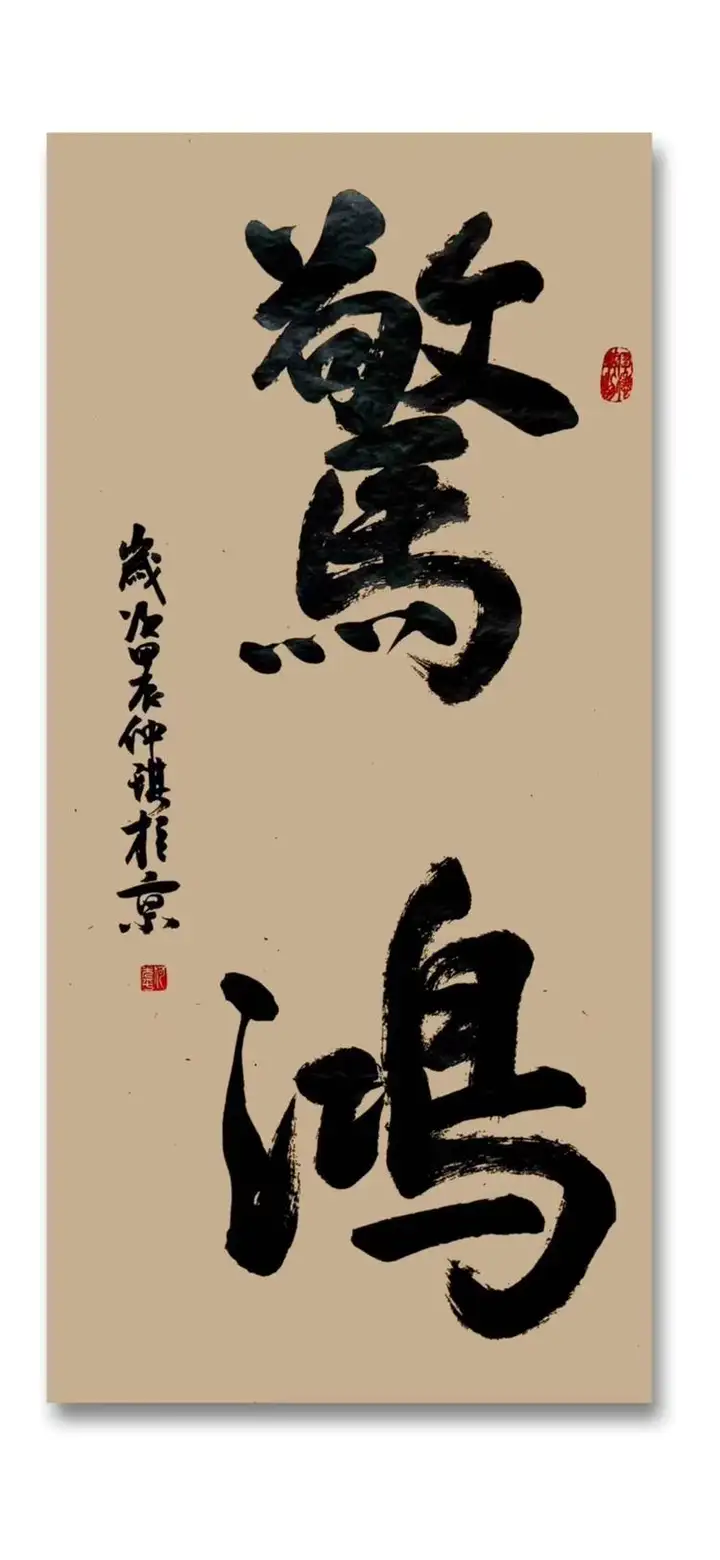 驚鴻
歲次甲辰仲琪於京